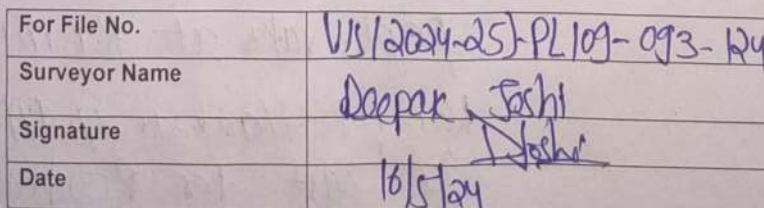 For File No. VIS(2024-25)-PL109-093-124
Surveyor Name Deepak Joshi
Signature DJoshi
Date 16/5/24